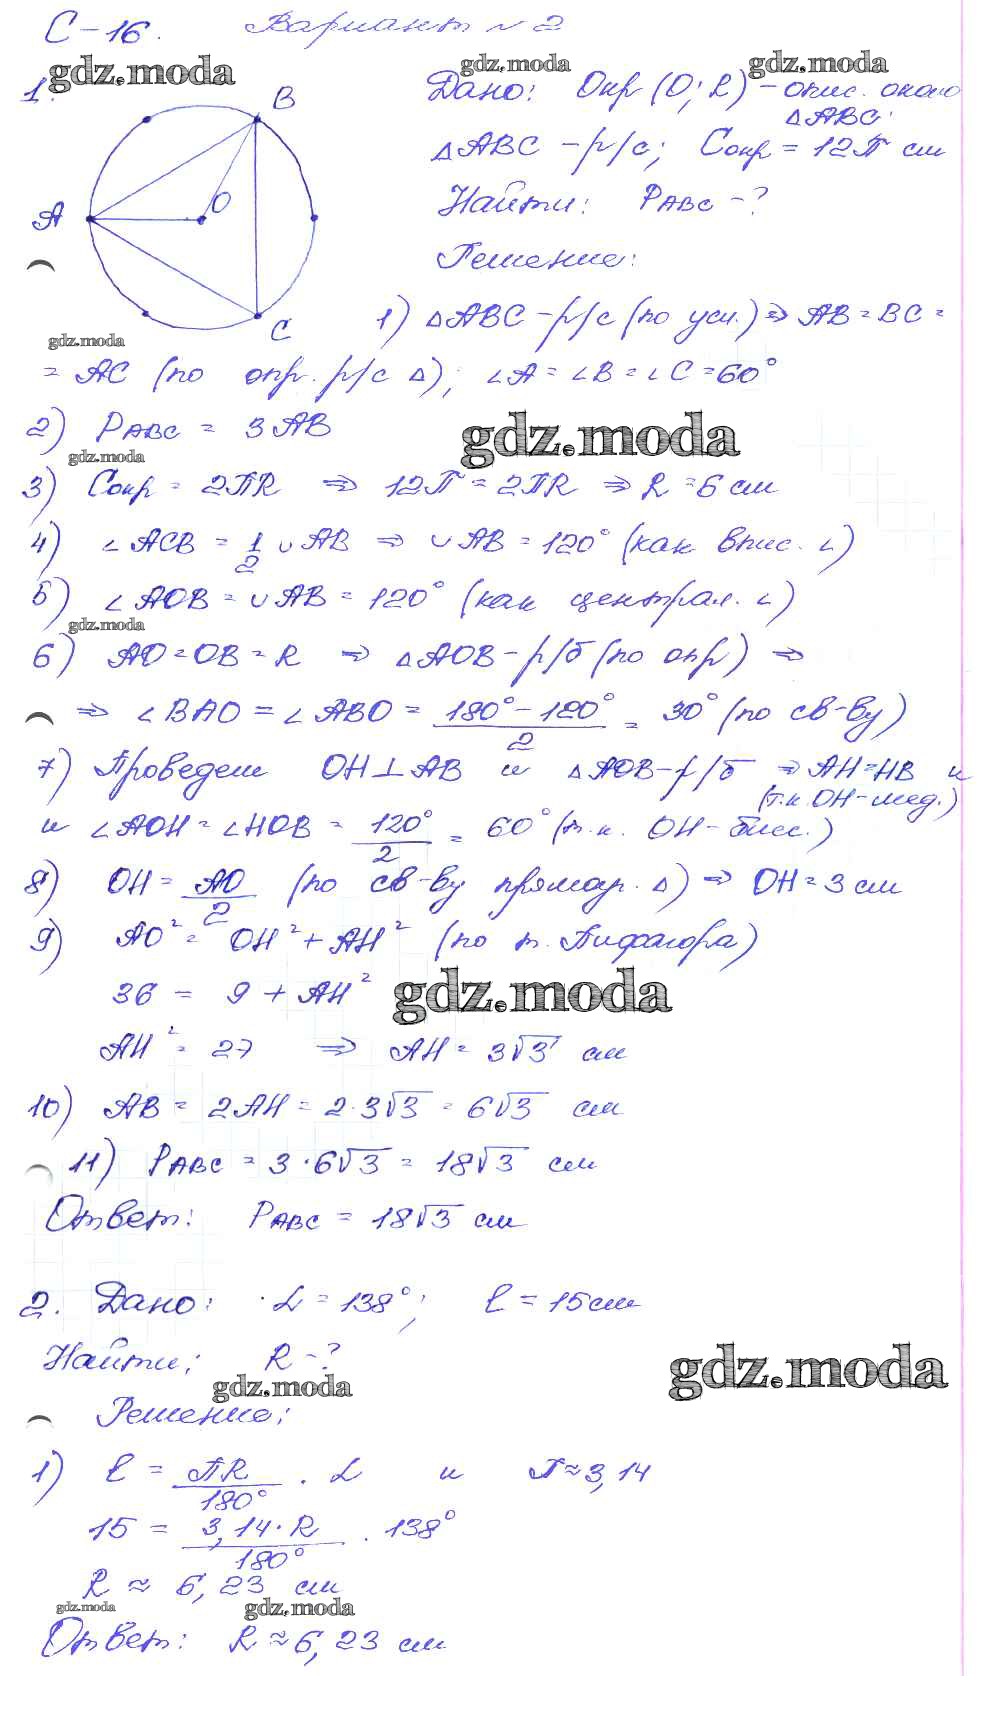 С-16. Вариант №2
gdz.moda
gdz.moda
gdz.moda
1.
B
O
A
C
Дано: Окр (O; R) – опис. около
△ABC.
△ABC – р/с; Cокр = 12π см
Найти: PABC – ?
Решение:
gdz.moda
1) △ABC – р/с (по усл.) ⇒ AB = BC =
= AC (по опр. р/с △); ∠A = ∠B = ∠C = 60°
2) PABC = 3AB
gdz.moda
gdz.moda
3) Cокр = 2πR ⇒ 12π = 2πR ⇒ R = 6 см
4) ∠ACB = 1/2 ∪AB ⇒ ∪AB = 120° (как впис. ∠)
5) ∠AOB = ∪AB = 120° (как централ. ∠)
gdz.moda
6) AO = OB = R ⇒ △AOB – р/б (по опр) ⇒
⇒ ∠BAO = ∠ABO = (180° – 120°)/2 = 30° (по св-ву)
7) Проведем OH ⊥ AB и △AOB – р/б ⇒ AH = HB и
(т.к. OH – мед.)
и ∠AOH = ∠HOB = 120°/2 = 60° (т.к. OH – бисс.)
8) OH = AO/2 (по св-ву прямоуг. △) ⇒ OH = 3 см
9) AO² = OH² + AH² (по т. Пифагора)
36 = 9 + AH²
gdz.moda
AH² = 27 ⇒ AH = 3√3 см
10) AB = 2AH = 2·3√3 = 6√3 см
11) PABC = 3·6√3 = 18√3 см
Ответ: PABC = 18√3 см
2. Дано: α = 138°; ℓ = 15 см
Найти: R – ?
gdz.moda
gdz.moda
Решение:
1) ℓ = πR/180° · α и π ≈ 3,14
15 = 3,14·R/180° · 138°
R ≈ 6,23 см
gdz.moda
gdz.moda
Ответ: R ≈ 6,23 см